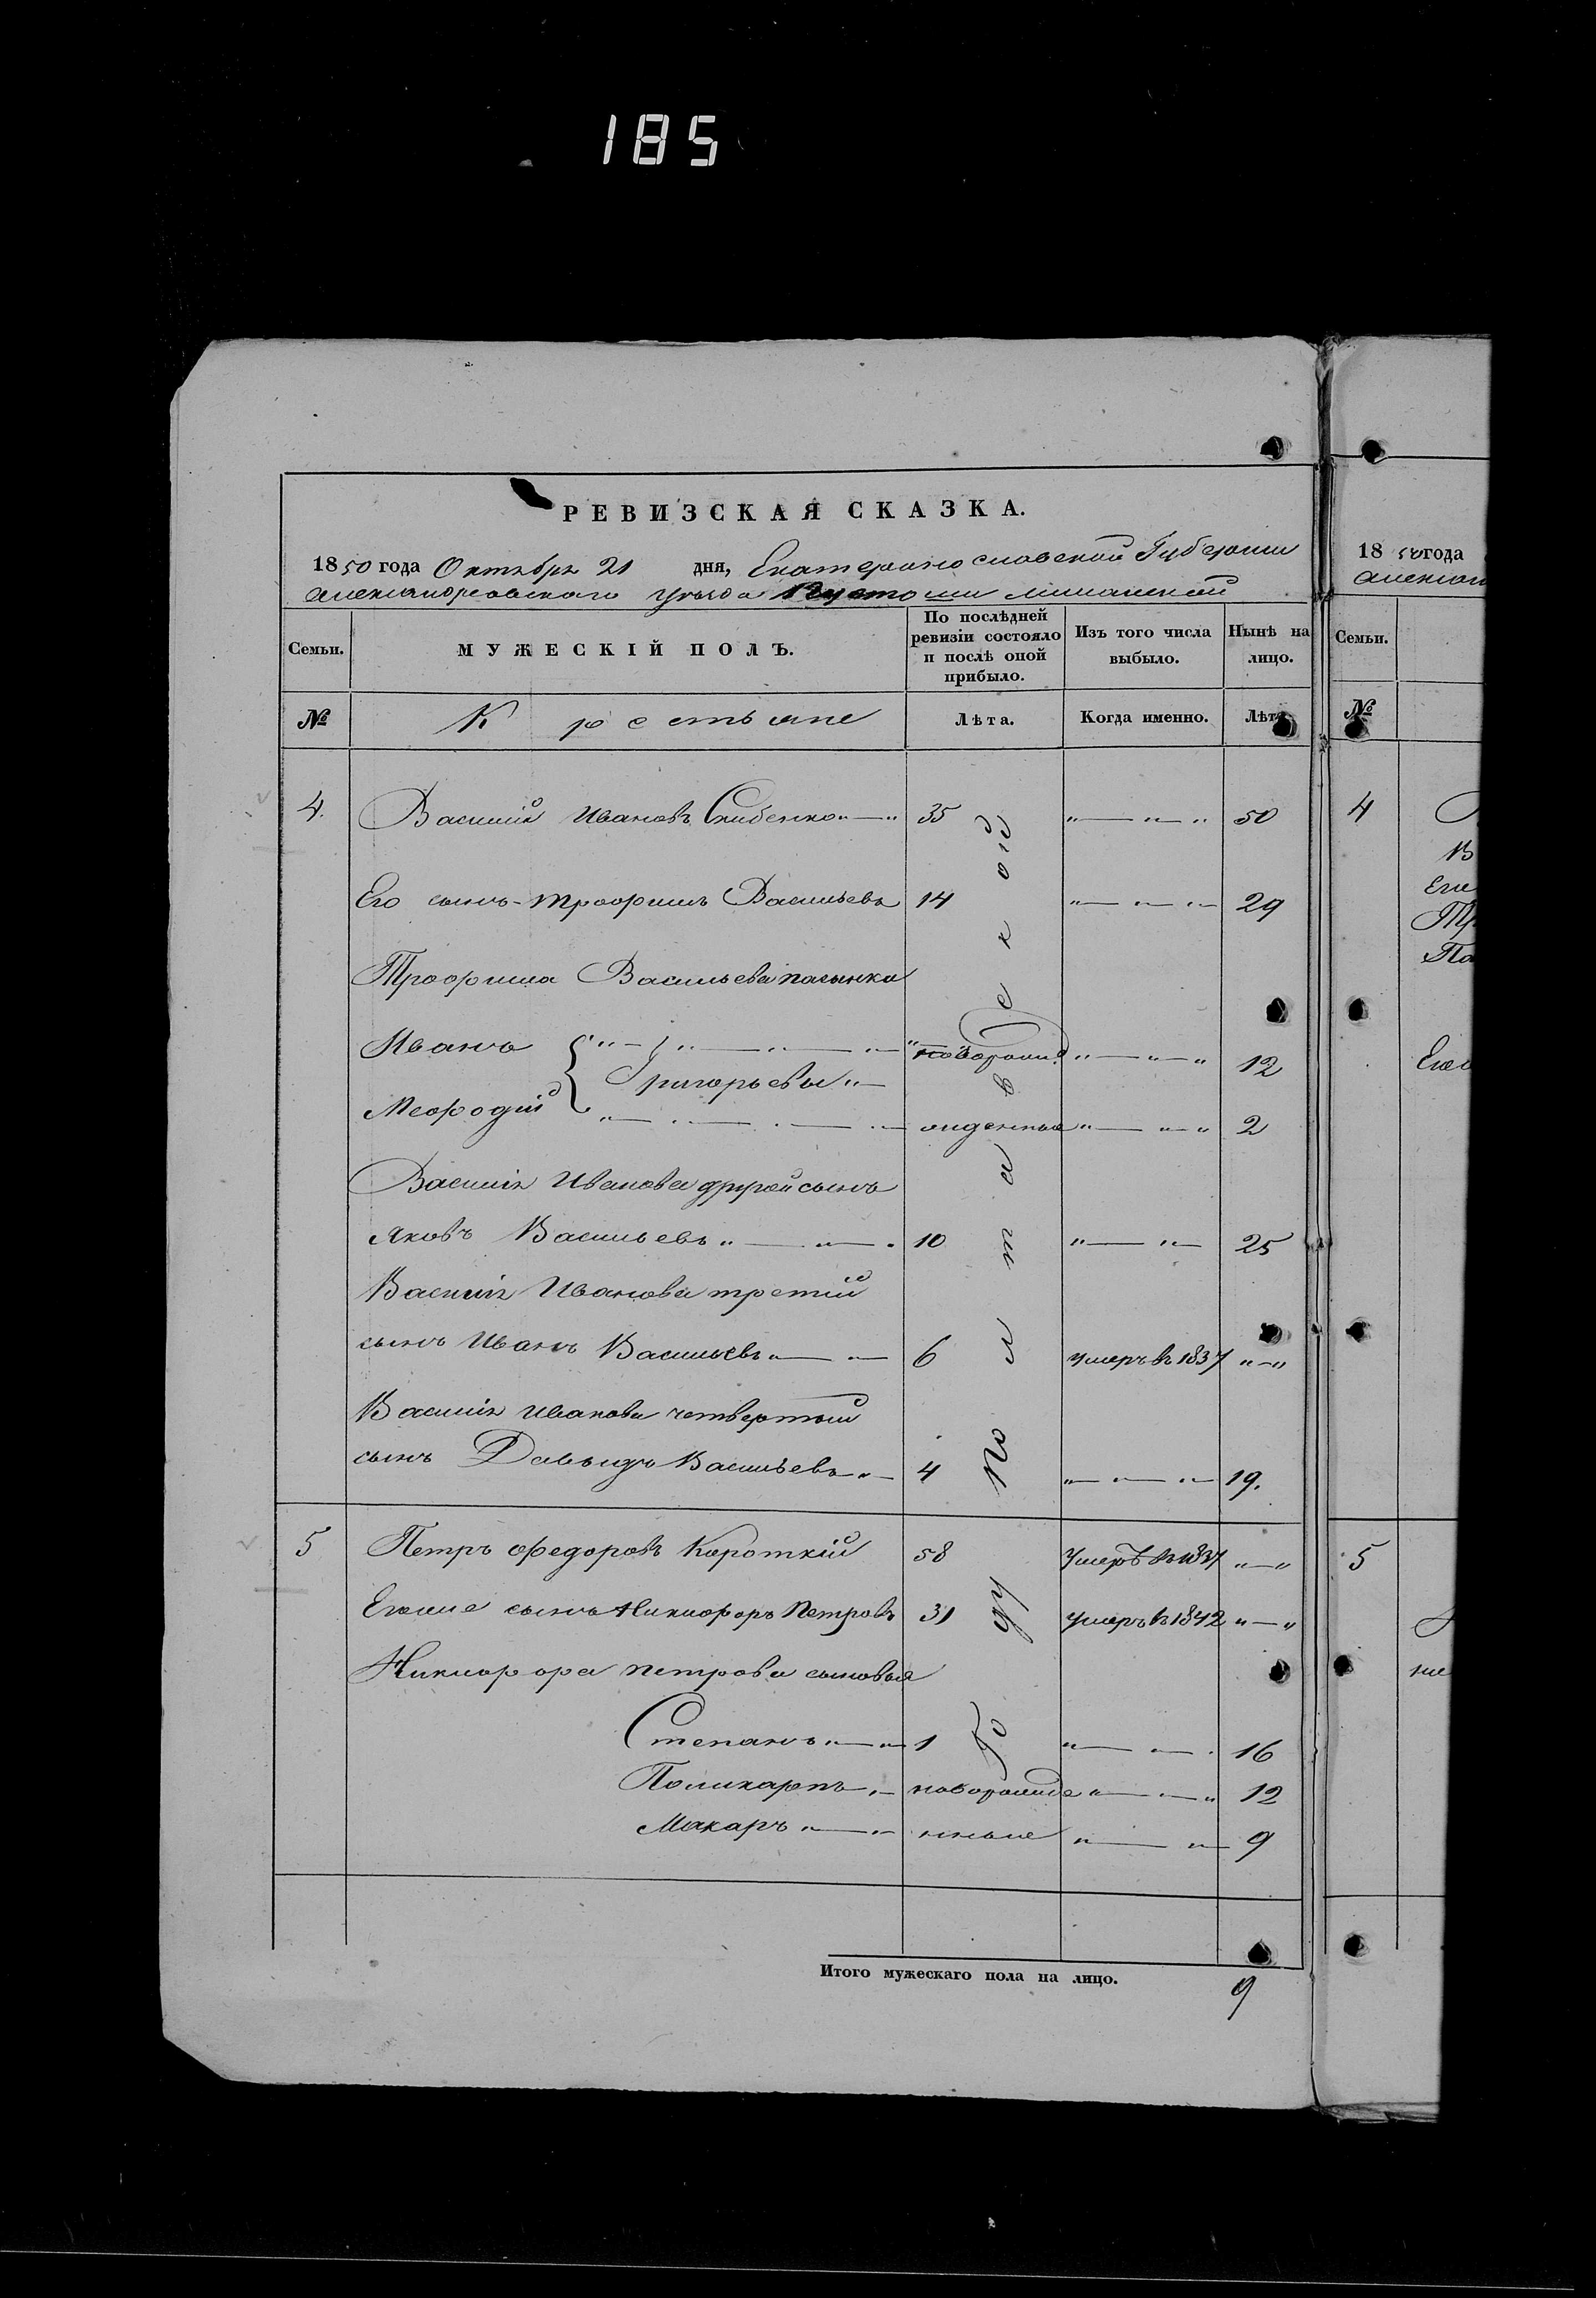 185
РЕВИЗСКАЯ СКАЗКА.
1850 года Октября 21 дня, Екатеринославской Губернии
Александровскаго уезда Пустоши
Семьи. МУЖЕСКІЙ ПОЛЪ. По послѣдней ревизіи состояло и послѣ оной прибыло. Изъ того числа выбыло. Нынѣ на лицо.
№ Крестьяне Лѣта. Когда именно. Лѣта
4. Василій Ивановъ Скибенко 35 50
Его сынъ Трофимъ Васильевъ 14 29
Трофима Васильева пасынки
Иванъ новорож 12
Григорьевы
Мефодій денные 2
Василія Иванова другой сынъ
Яковъ Васильевъ 10 25
Василія Иванова третій
сынъ Иванъ Васильевъ 6 умеръ въ 1837
Василія Иванова четвертый
сынъ Давыдъ Васильевъ 4 19.
5 Петръ Федоровъ Короткій 58 Умеръ въ 1837
Егоже сынъ Никифоръ Петровъ 31 умеръ въ 1842
Никифора Петрова сыновья
Степанъ 1 16
Поликарпъ новорожде 12
Макаръ нные 9
Итого мужескаго пола на лицо.
9
18 50 года
Алексан
Семьи.
№
4
В
Его
Тр
Па
Его
5